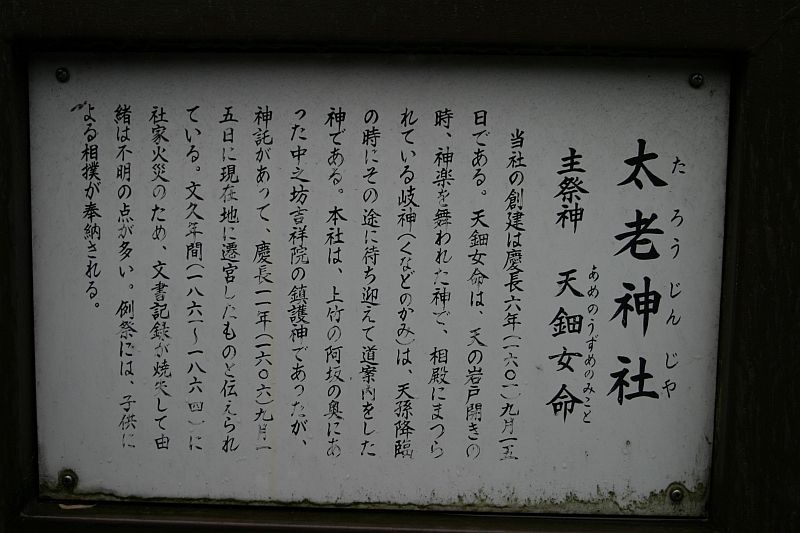 太老神社
たろうじんじゃ
主祭神 天鈿女命
あめのうずめのみこと
当社の創建は慶長六年(一六〇一)九月一五
日である。天鈿女命は、天の岩戸開きの
時、神楽を舞われた神で、相殿にまつら
れている岐神(くなどのかみ)は、天孫降臨
の時にその途に待ち迎えて道案内をした
神である。本社は、上竹の阿坂の奥にあ
った中之坊吉祥院の鎮護神であったが、
神託があって、慶長一一年(一六〇六)九月一
五日に現在地に遷宮したものと伝えられ
ている。文久年間(一八六一～一八六四)に
社家火災のため、文書記録が焼失して由
緒は不明の点が多い。例祭には、子供に
よる相撲が奉納される。